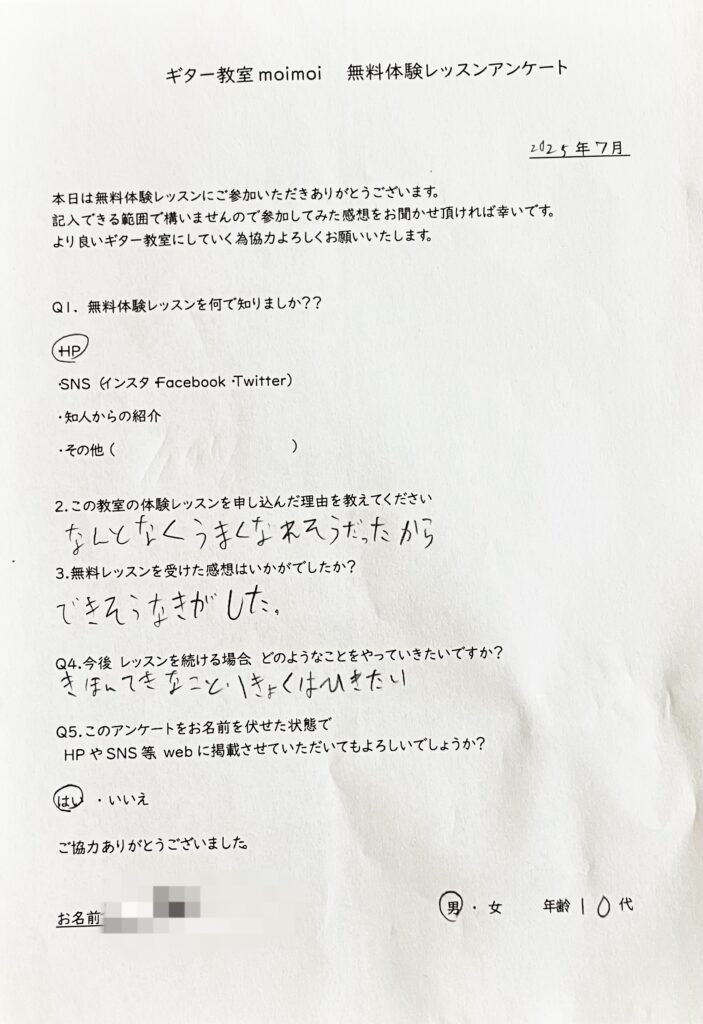 ギター教室moimoi 無料体験レッスンアンケート
2025年7月
本日は無料体験レッスンにご参加いただきありがとうございます。
記入できる範囲で構いませんので参加してみた感想をお聞かせ頂ければ幸いです。
より良いギター教室にしていく為協力よろしくお願いいたします。
Q1. 無料体験レッスンを何で知りましか??
・HP
・SNS（インスタ・Facebook・Twitter）
・知人からの紹介
・その他（ ）
2.この教室の体験レッスンを申し込んだ理由を教えてください
なんとなくうまくなれそうだったから
3.無料レッスンを受けた感想はいかがでしたか?
できそうなきがした。
Q4.今後 レッスンを続ける場合、どのようなことをやっていきたいですか?
きほんてきなこと、1きょくはひきたい
Q5.このアンケートをお名前を伏せた状態で
HPやSNS等、webに掲載させていただいてもよろしいでしょうか?
はい ・いいえ
ご協力ありがとうございました。
お名前
男 ・ 女 年齢 10代